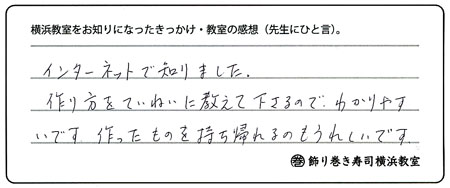 横浜教室をお知りになったきっかけ・教室の感想（先生にひと言）。
インターネットで知りました。
作り方をていねいに教えて下さるので、わかりやす
いです 作ったものを持ち帰れるのもうれしいです。
巻 飾り巻き寿司横浜教室